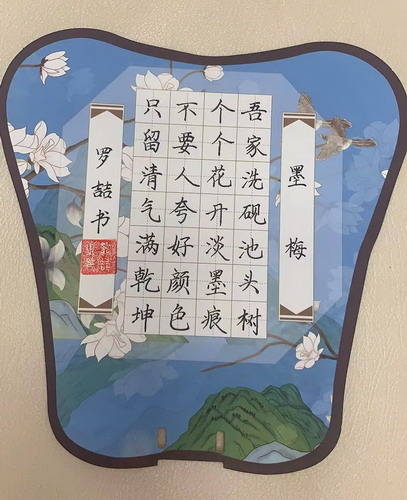 墨梅
吾家洗砚池头树
个个花开淡墨痕
不要人夸好颜色
只留清气满乾坤
罗喆书